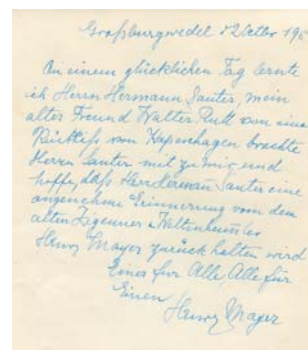 Großburgwedel 12 Oktber 195
An einem glücklichen Tag lernte
ich Herrn Hermann Sauter, mein
alter Freund Walter Rütt von eine
Rücktiß von Kopenhagen brachte
Herrn Sauter mit zu mir und
hoffe, daß Herr Hermann Sauter eine
angenehme Erinnerung von dem
alten Zigeuner u Weltenbummler
Henry Mayer zurück halten wird
Einer für Alle, Alle für
Einen
Henry Mayer